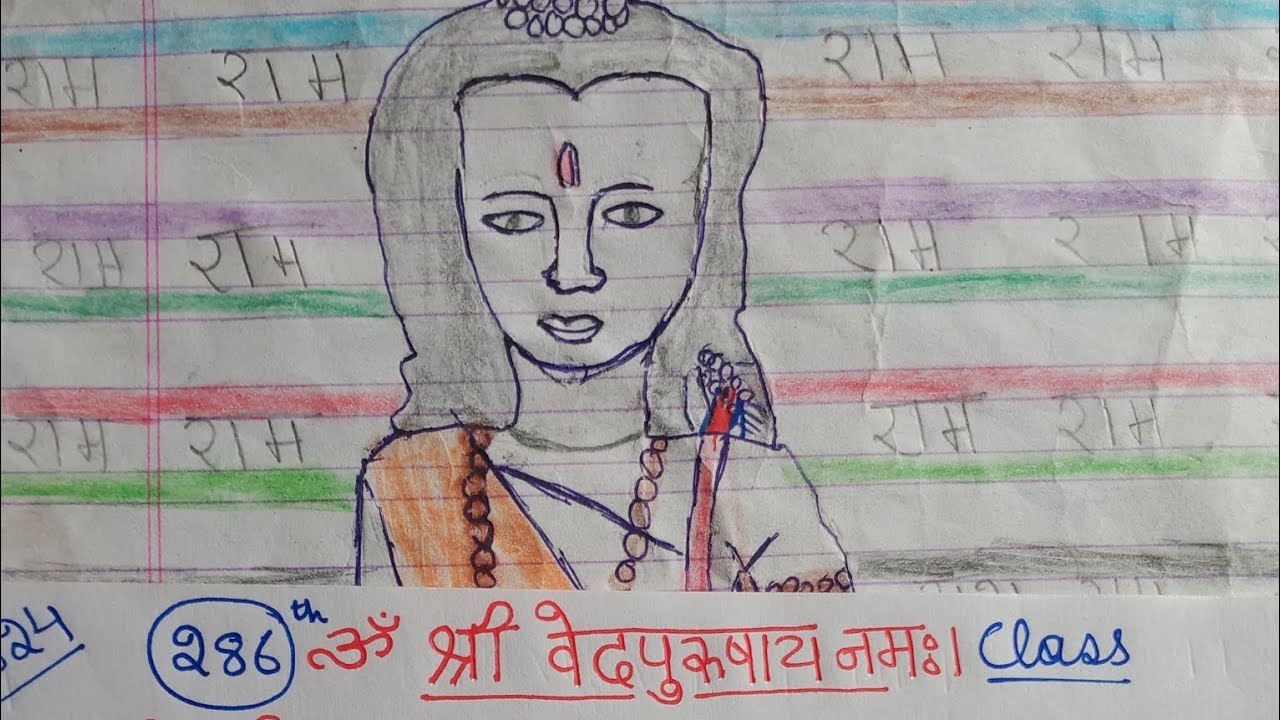 राम राम राम राम
राम राम राम राम
राम राम राम राम
286th ॐ श्री वेदपुरुषाय नमः। Class